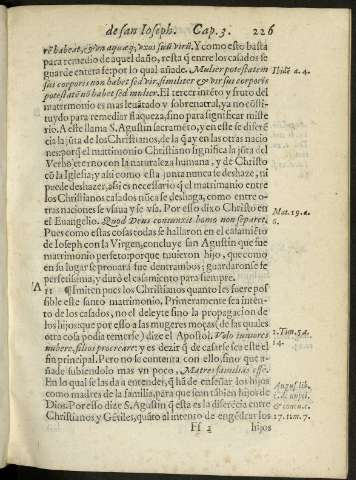 de san Ioseph. Cap. 3. 226
rē habeat, & vnaquæq; vxor suū virū. Y como esto basta
para remedio de aquel daño, resta q̃ entre los casados se
guarde entera fe: por lo qual añade. Mulier potestatem
sui corporis non habet sed vir, similiter & vir sui corporis
potestatē nō habet sed mulier. El tercer intēto y fruto del
matrimonio es mas leuãtado y sobrenatral, ya no cōsti-
tuydo para remediar flaqueza, sino para significar miste
rio. A este llama S. Agustin sacramēto, y en este se diferē
cia la jūta de los Christianos, de la q̃ ay en las otras nacio
nes: porq̃ el matrimonio Christiano significa la jūta del
Verbo eterno con la naturaleza humana, y de Christo
cō la Iglesia; y asi como esta junta nunca se deshaze, ni
puede deshazer, asi es necesario q̃ el matrimonio entre
los Christianos casados nūca se deshaga, como entre o-
tras naciones se vsaua y se vsa. Por eso dixo Christo en
el Euangelio. Quod Deus coniunxit homo non separet.
Pues como estas cosas todas se hallaron en el casamiēto
de Ioseph con la Virgen, concluye san Agustin que fue
matrimonio perfeto: porque tuuieron hijo, que como
en su lugar se prouará fue de entrambos; guardaronse fe
perfetisima, y duró el casamiento para siempre.
11 ¶ Imiten pues los Christianos quanto les fuere pos
sible este santo matrimonio. Primeramente sea inten-
to de los casados, no el deleyte sino la propagacion de
los hijos: que por esso a las mugeres moças (de las quales
otra cosa podia temerse) dize el Apostol. Volo iuniores
nubere, filios procreare: y es dezir q̃ de casarse sea este el
fin principal. Pero no se contenta con esso, sino que a-
ñade subiendolo mas vn poco, Matres familias esse.
En lo qual se las da a entender, q̃ hã de enseñar los hijos
como madres de la familia, para que sean tãbien hijos de
Dios. Por esso dize S. Agustin q̃ esta es la diferēcia entre
Christianos y Gētiles, quãto al intento de engēdrar los
Ff 2 hijos
Ibidē a. 4.
Mat. 19. a.
6.
1. Tim. 5. a.
14.
August. lib.
17. tom. 7.